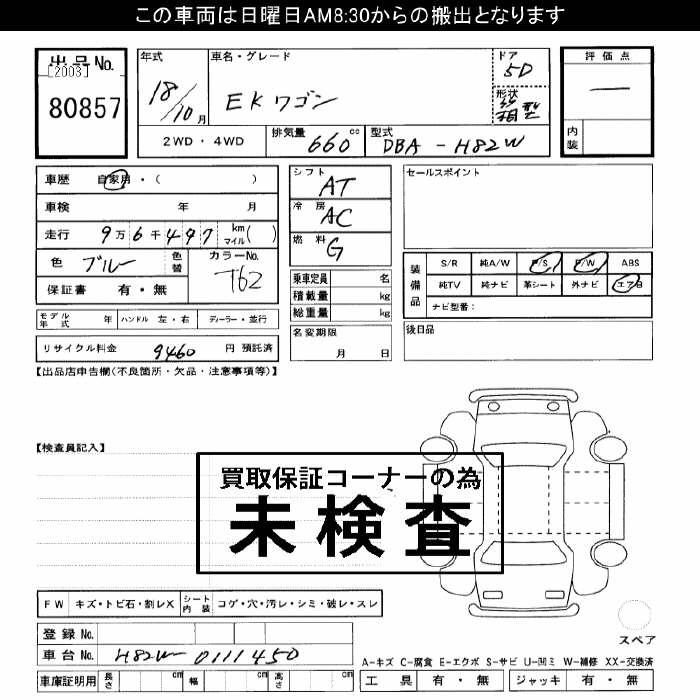 この車両は日曜日AM8:30からの搬出となります
出品No.
[2003]
80857
年式
18/10月
車名・グレード
EKワゴン
ドア
5D
形状
箱型
評価点
―
内装
2WD・4WD
排気量
660 cc
型式
DBA-H82W
車歴 自家用・( )
車検 年 月
走行 9万6千497 km マイル( )
色 ブルー 色替 カラーNo. T62
保証書 有・無
モデル年式 年 ハンドル 左・右 ディーラー・並行
リサイクル料金 9460 円 預託済
シフト
AT
冷房
AC
燃料
G
乗車定員 名
積載量 kg
総重量 kg
名変期限
月 日
セールスポイント
装備品
S/R 純A/W P/S P/W ABS
純TV 純ナビ 革シート 外ナビ エアB
ナビ型番:
後日品
【出品店申告欄(不良箇所・欠品・注意事項等)】
【検査員記入】
買取保証コーナーの為
未検査
FW キズ・トビ石・割レX シート内装 コゲ・穴・汚レ・シミ・破レ・スレ
登録No.
車台No. H82W-0111450
車庫証明用 長さ cm 幅 cm 高さ cm
スペア
A-キズ C-腐食 E-エクボ S-サビ U-凹ミ W-補修 XX-交換済
工具 有・無 ジャッキ 有・無